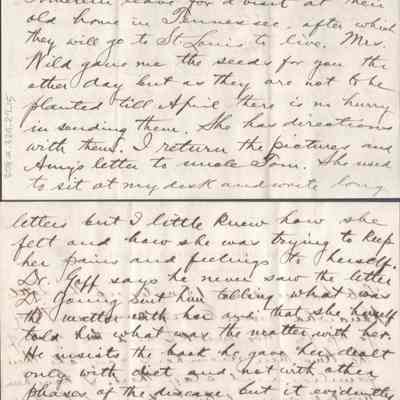 leave for a visit at their
old home in Tennessee, after which
they will go to St. Louis to live. Mrs.
Wild gave me the seeds for you the
other day but as they are not to be
planted till April there is no hurry
in sending them. She has directions
with them. I return the pictures and
Amy's letter to uncle Tom. She used
to sit at my desk and write long
letters but I little knew how she
felt and how she was trying to keep
her pains and feelings to herself.
Dr. Goff says he never saw the letter
Dr. Young sent him telling what was
the matter with her and that she herself
told him what was the matter with her.
He insists the book he gave her dealt
only with diet and not with other
phases of the disease, but it evidently